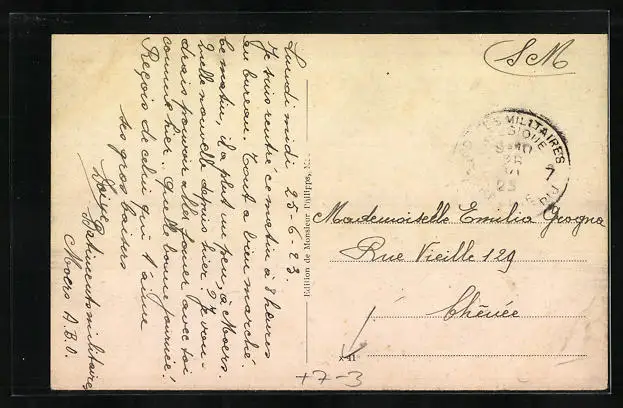 Lundi midi 25-6-23.
Je suis rentré ce matin à 8 heures
au bureau. Tout a bien marché.
Ce matin, il a plut un peu, à Moers.
Quelle nouvelle depuis hier? Je vou-
drais pouvoir aller faner avec toi
comme hier. Quelle bonne journée!
Reçois de celui qui t'aime
ses gros baisers
Batiments militaires
Moers A.B.O.
Edition de Monsieur Philipps,
SM
POSTES MILITAIRES
BELGIQUE
7
23
Mademoiselle Emilia Grogna
Rue Vieille 129
Chênée
+7-3